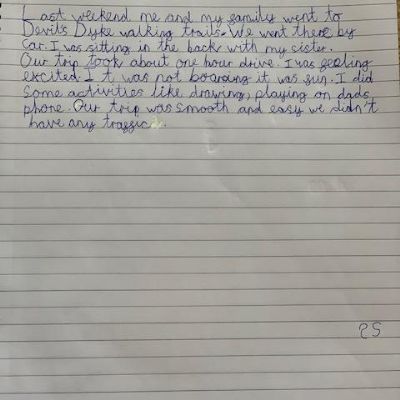 Last weekend me and my family went to
Devil's Dyke walking trails. We went there by
Car. I was sitting in the back with my sister.
Our trip took about one hour drive. I was feeling
excited. It was not boarding it was fun. I did
Some activities like drawing, playing on dads
phone. Our trip was smooth and easy we didn't
have any traffic.